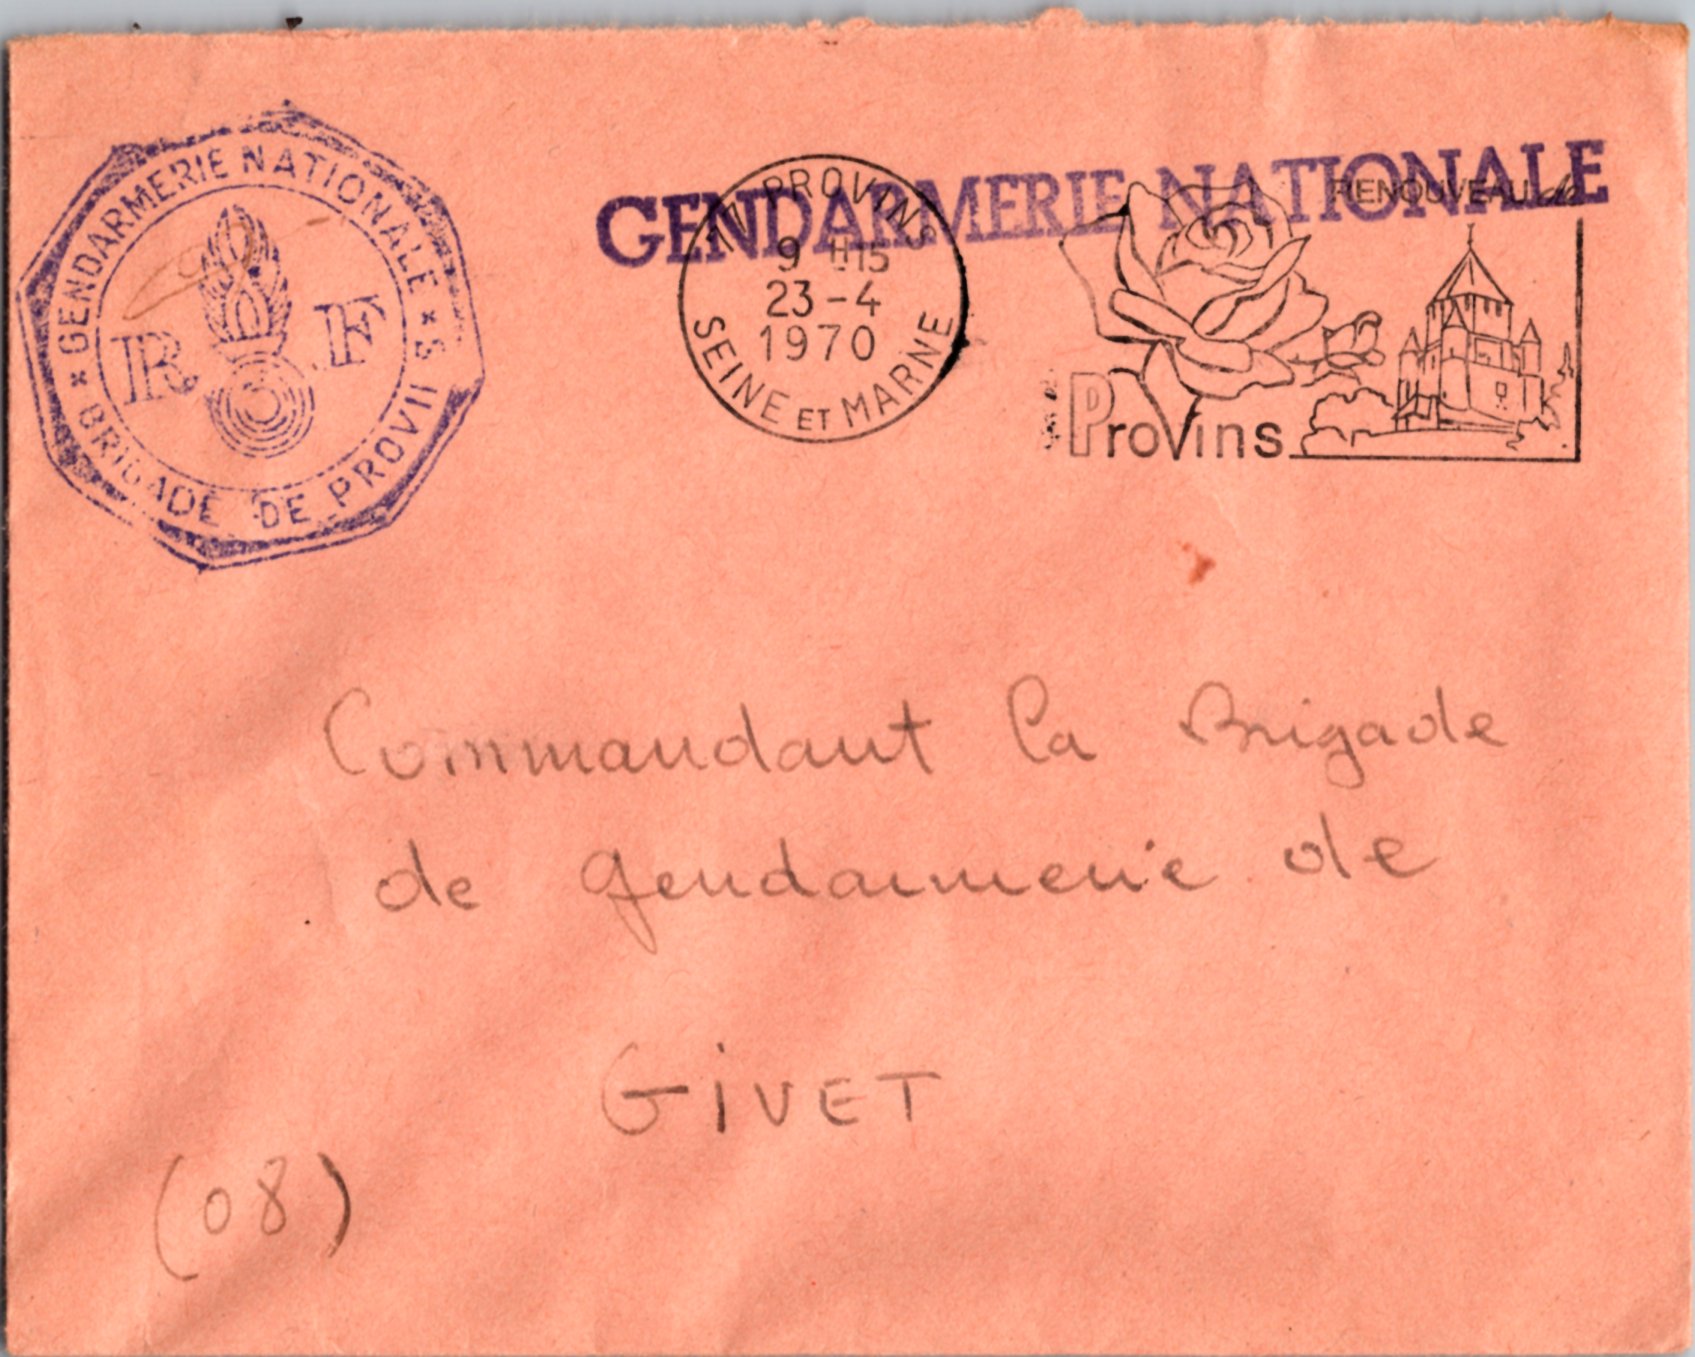 GENDARMERIE NATIONALE
BRIGADE DE PROVII S
R F
GENDARMERIE NATIONALE
77 PROVINS
9 H15
23-4
1970
SEINE ET MARNE
RENOUVEAU de
Provins
Commandant la Brigade
de gendarmerie de
GIVET
(08)